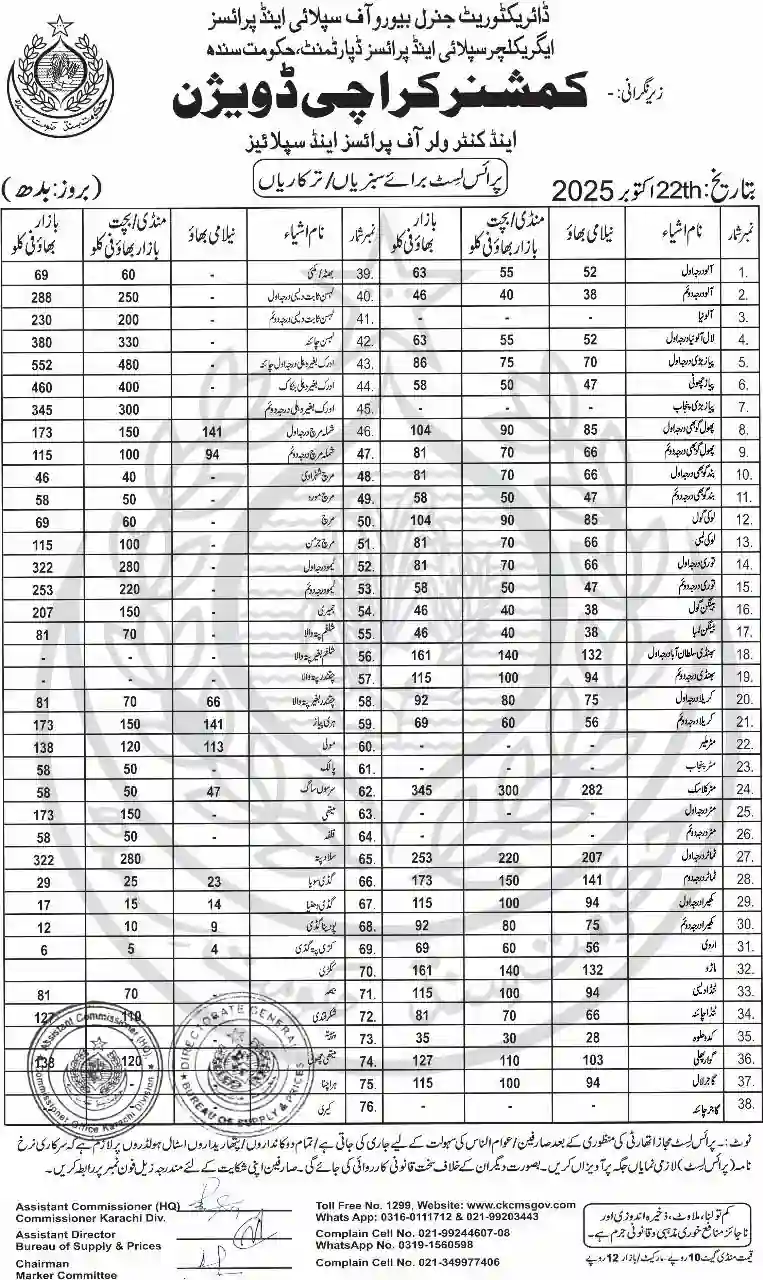 ڈائریکٹوریٹ جنرل بیورو آف سپلائی اینڈ پرائسز
ایگریکلچر سپلائی اینڈ پرائسز ڈپارٹمنٹ، حکومت سندھ
زیر نگرانی: - کمشنر کراچی ڈویژن
اینڈ کنٹرولر آف پرائسز اینڈ سپلائیز
بتاریخ: 22th اکتوبر 2025 پرائس لسٹ برائے سبزیاں/ترکاریاں (بروز: بدھ)
نمبر شمار نام اشیاء نیلامی بھاؤ منڈی/بچت بازار بھاؤ فی کلو بازار بھاؤ فی کلو نمبر شمار نام اشیاء نیلامی بھاؤ منڈی/بچت بازار بھاؤ فی کلو بازار بھاؤ فی کلو
1. آلو درجہ اول 52 55 63 39. بھٹہ/مکئی - 60 69
2. آلو درجہ دوئم 38 40 46 40. لہسن ثابت دیسی درجہ اول - 250 288
3. آلو نیا - - - 41. لہسن ثابت دیسی درجہ دوئم - 200 230
4. لال آلو نیا درجہ اول 52 55 63 42. لہسن چائنہ - 330 380
5. پیاز بڑی درجہ اول 70 75 86 43. ادرک بغیر دھلی درجہ اول چائنہ - 480 552
6. پیاز چھوٹی 47 50 58 44. ادرک بغیر دھلی بنکاک - 400 460
7. پیاز بڑی پنجاب - - - 45. ادرک بغیر دھلی درجہ دوئم - 300 345
8. پھول گوبھی درجہ اول 85 90 104 46. شملہ مرچ درجہ اول 141 150 173
9. پھول گوبھی درجہ دوئم 66 70 81 47. شملہ مرچ درجہ دوئم 94 100 115
10. بند گوبھی درجہ اول 66 70 81 48. مرچ شہزادی - 40 46
11. بند گوبھی درجہ دوئم 47 50 58 49. مرچ - 50 58
12. لوکی گول 85 90 104 50. مرچ - 60 69
13. لوکی لمبی 66 70 81 51. مرچ جرمن - 100 115
14. توری درجہ اول 66 70 81 52. لیمو درجہ اول - 280 322
15. توری درجہ دوئم 47 50 58 53. لیمو درجہ دوئم - 220 253
16. بینگن گول 38 40 46 54. جمیری - 150 207
17. بینگن لمبا 38 40 46 55. شلغم پتہ والا - 70 81
18. بھنڈی سلطان آباد درجہ اول 132 140 161 56. شلغم بغیر پتہ والا - - -
19. بھنڈی درجہ دوئم 94 100 115 57. چقندر پتہ والا - - -
20. کریلا درجہ اول 75 80 92 58. چقندر بغیر پتہ والا 66 70 81
21. کریلا درجہ دوئم 56 60 69 59. ہری پیاز 141 150 173
22. مٹر ملیر - - - 60. مولی 113 120 138
23. مٹر پنجاب - - - 61. پالک - 50 58
24. مٹر کلاسک 282 300 345 62. سرسوں ساگ 47 50 58
25. مٹر درجہ اول - - - 63. میتھی - 150 173
26. مٹر درجہ دوئم - - - 64. قلفہ - 50 58
27. ٹماٹر درجہ اول 207 220 253 65. سلاد پتہ - 280 322
28. ٹماٹر درجہ دوم 141 150 173 66. گڈی سویا 23 25 29
29. کھیرا درجہ اول 94 100 115 67. گڈی دھنیا 14 15 17
30. کھیرا درجہ دوئم 75 80 92 68. پودینا گڈی 9 10 12
31. اروی 56 60 69 69. کڑی پتہ گڈی 4 5 6
32. اڑو 132 140 161 70. ککڑی
33. ٹنڈا دیسی 94 100 115 71. - 70 81
34. ٹنڈا چائنہ 66 70 81 72. شکر قندی - 110 127
35. کدو حلوہ 28 30 35 73.
36. گوار پھلی 103 110 127 74. میتھی چھوٹی 120 138
37. گاجر لال 94 100 115 75. ہرا چنا
38. گاجر چائنہ - - - 76. کیری
نوٹ:۔ پرائس لسٹ مجاز اتھارٹی کی منظوری کے بعد صارفین/عوام الناس کی سہولت کے لیے جاری کی جاتی ہے/تمام دوکانداروں/پتھاریداروں اسٹال ہولڈروں پر لازم ہے کہ سرکاری نرخ
نامہ (پرائس لسٹ) لازمی نمایاں جگہ پر آویزاں کریں۔ بصورت دیگر ان کے خلاف سخت قانونی کارروائی کی جائے گی۔ صارفین اپنی شکایت کے لئے مندرجہ زیل فون نمبر پر رابطہ کریں۔
Assistant Commissioner (HQ)
Commissioner Karachi Div.
Assistant Director
Bureau of Supply & Prices
Chairman
Marker Committee
Toll Free No. 1299, Website: www.ckcmsgov.com
Whats App: 0316-0111712 & 021-99203443
Complain Cell No. 021-99244607-08
WhatsApp No. 0319-1560598
Complain Cell No. 021-349977406
کم تولنا، ملاوٹ، ذخیرہ اندوزی اور
ناجائز منافع خوری مذہبی و قانونی جرم ہے۔
قیمت منڈی گیٹ 10 روپے، مارکیٹ/بازار 12 روپے
Assistant Commissioner (HQ)
Commissioner Office Karachi Division
DIRECTORATE GENERAL
BUREAU OF SUPPLY & PRICES